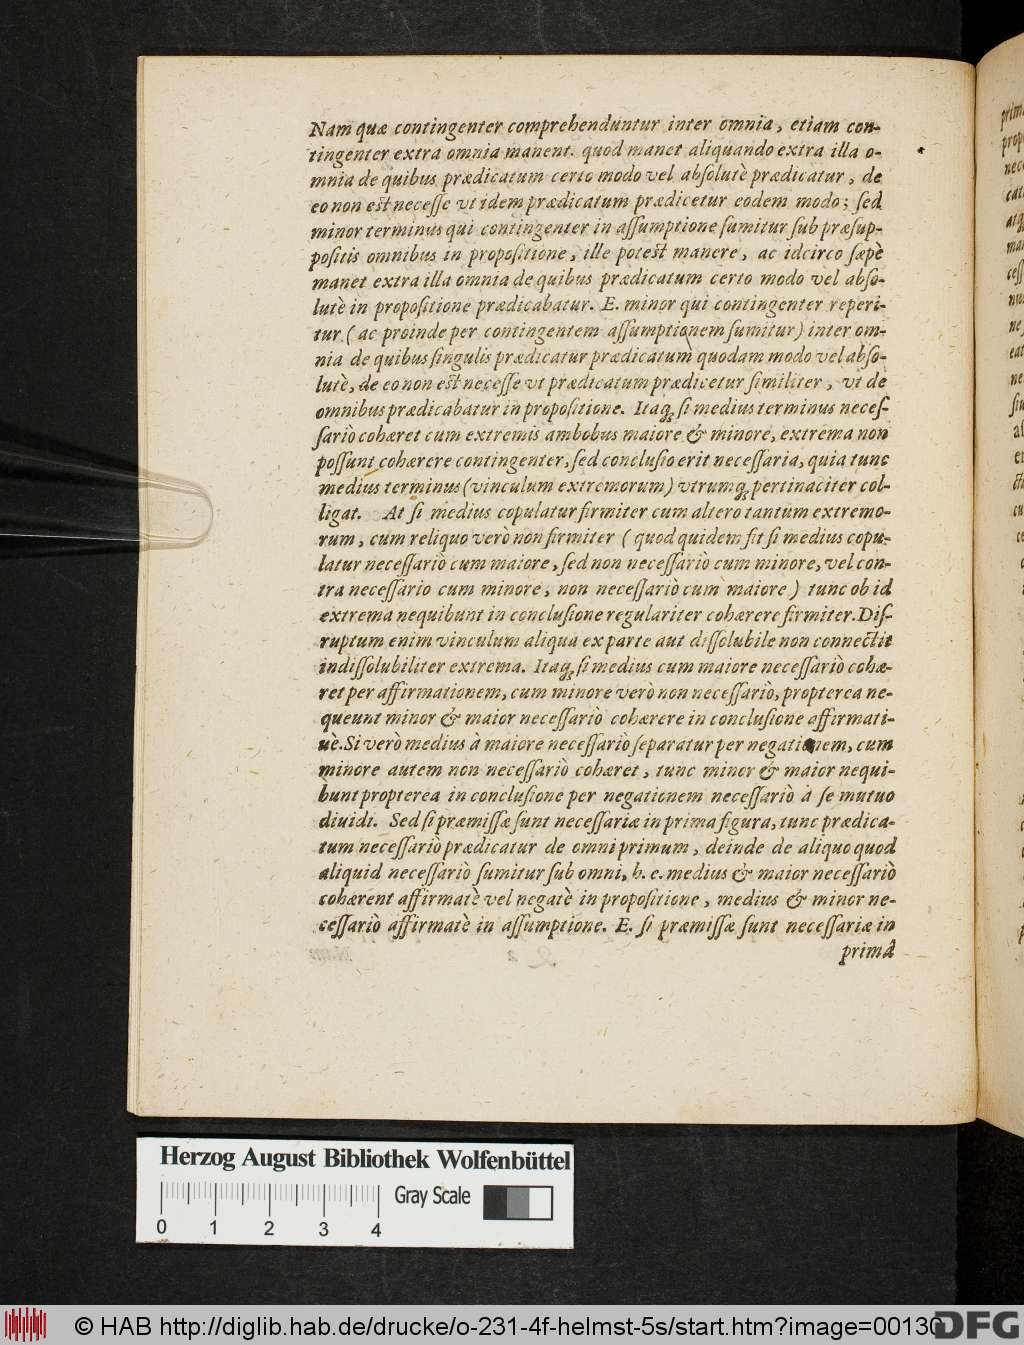 Nam quæ contingenter comprehenduntur inter omnia, etiam con-
tingenter extra omnia manent. quod manet aliquando extra illa o-
mnia de quibus prædicatum certo modo vel absolutè prædicatur, de
eo non est necesse vt idem prædicatum prædicetur eodem modo; sed
minor terminus qui contingenter in assumptione sumitur sub præsup-
positis omnibus in propositione, ille potest manere, ac idcirco sæpè
manet extra illa omnia de quibus prædicatum certo modo vel abso-
lutè in propositione prædicabatur. E. minor qui contingenter reperi-
tur (ac proinde per contingentem assumptionem sumitur) inter om-
nia de quibus singulis prædicatur prædicatum quodam modo vel abso-
lutè, de eo non est necesse vt prædicatum prædicetur similiter, vt de
omnibus prædicabatur in propositione. Itaq; si medius terminus neces-
sariò cohæret cum extremis ambobus maiore & minore, extrema non
possunt cohærere contingenter, sed conclusio erit necessaria, quia tunc
medius terminus (vinculum extremorum) vtrumq; pertinaciter col-
ligat. At si medius copulatur firmiter cum altero tantum extremo-
rum, cum reliquo verò non firmiter (quod quidem fit si medius copu-
latur necessariò cum maiore, sed non necessariò cum minore, vel con-
tra necessario cum minore, non necessariò cum maiore) tunc ob id
extrema nequibunt in conclusione regulariter cohærere firmiter. Dis-
ruptum enim vinculum aliqua ex parte aut dissolubile non connectit
indissolubiliter extrema. Itaq; si medius cum maiore necessariò cohæ-
ret per affirmationem, cum minore verò non necessariò, propterea ne-
queunt minor & maior necessariò cohærere in conclusione affirmati-
uè. Si verò medius à maiore necessariò separatur per negationem, cum
minore autem non necessariò cohæret, tunc minor & maior nequi-
bunt propterea in conclusione per negationem necessariò à se mutuo
diuidi. Sed si præmissæ sunt necessariæ in prima figura, tunc prædica-
tum necessariò prædicatur de omni primum, deinde de aliquo quod
aliquid necessariò sumitur sub omni, h. e. medius & maior necessariò
cohærent affirmatè vel negatè in propositione, medius & minor ne-
cessariò affirmatè in assumptione. E. si præmissæ sunt necessariæ in
primâ
Herzog August Bibliothek Wolfenbüttel
Gray Scale
0 1 2 3 4
© HAB http://diglib.hab.de/drucke/o-231-4f-helmst-5s/start.htm?image=00130
DFG